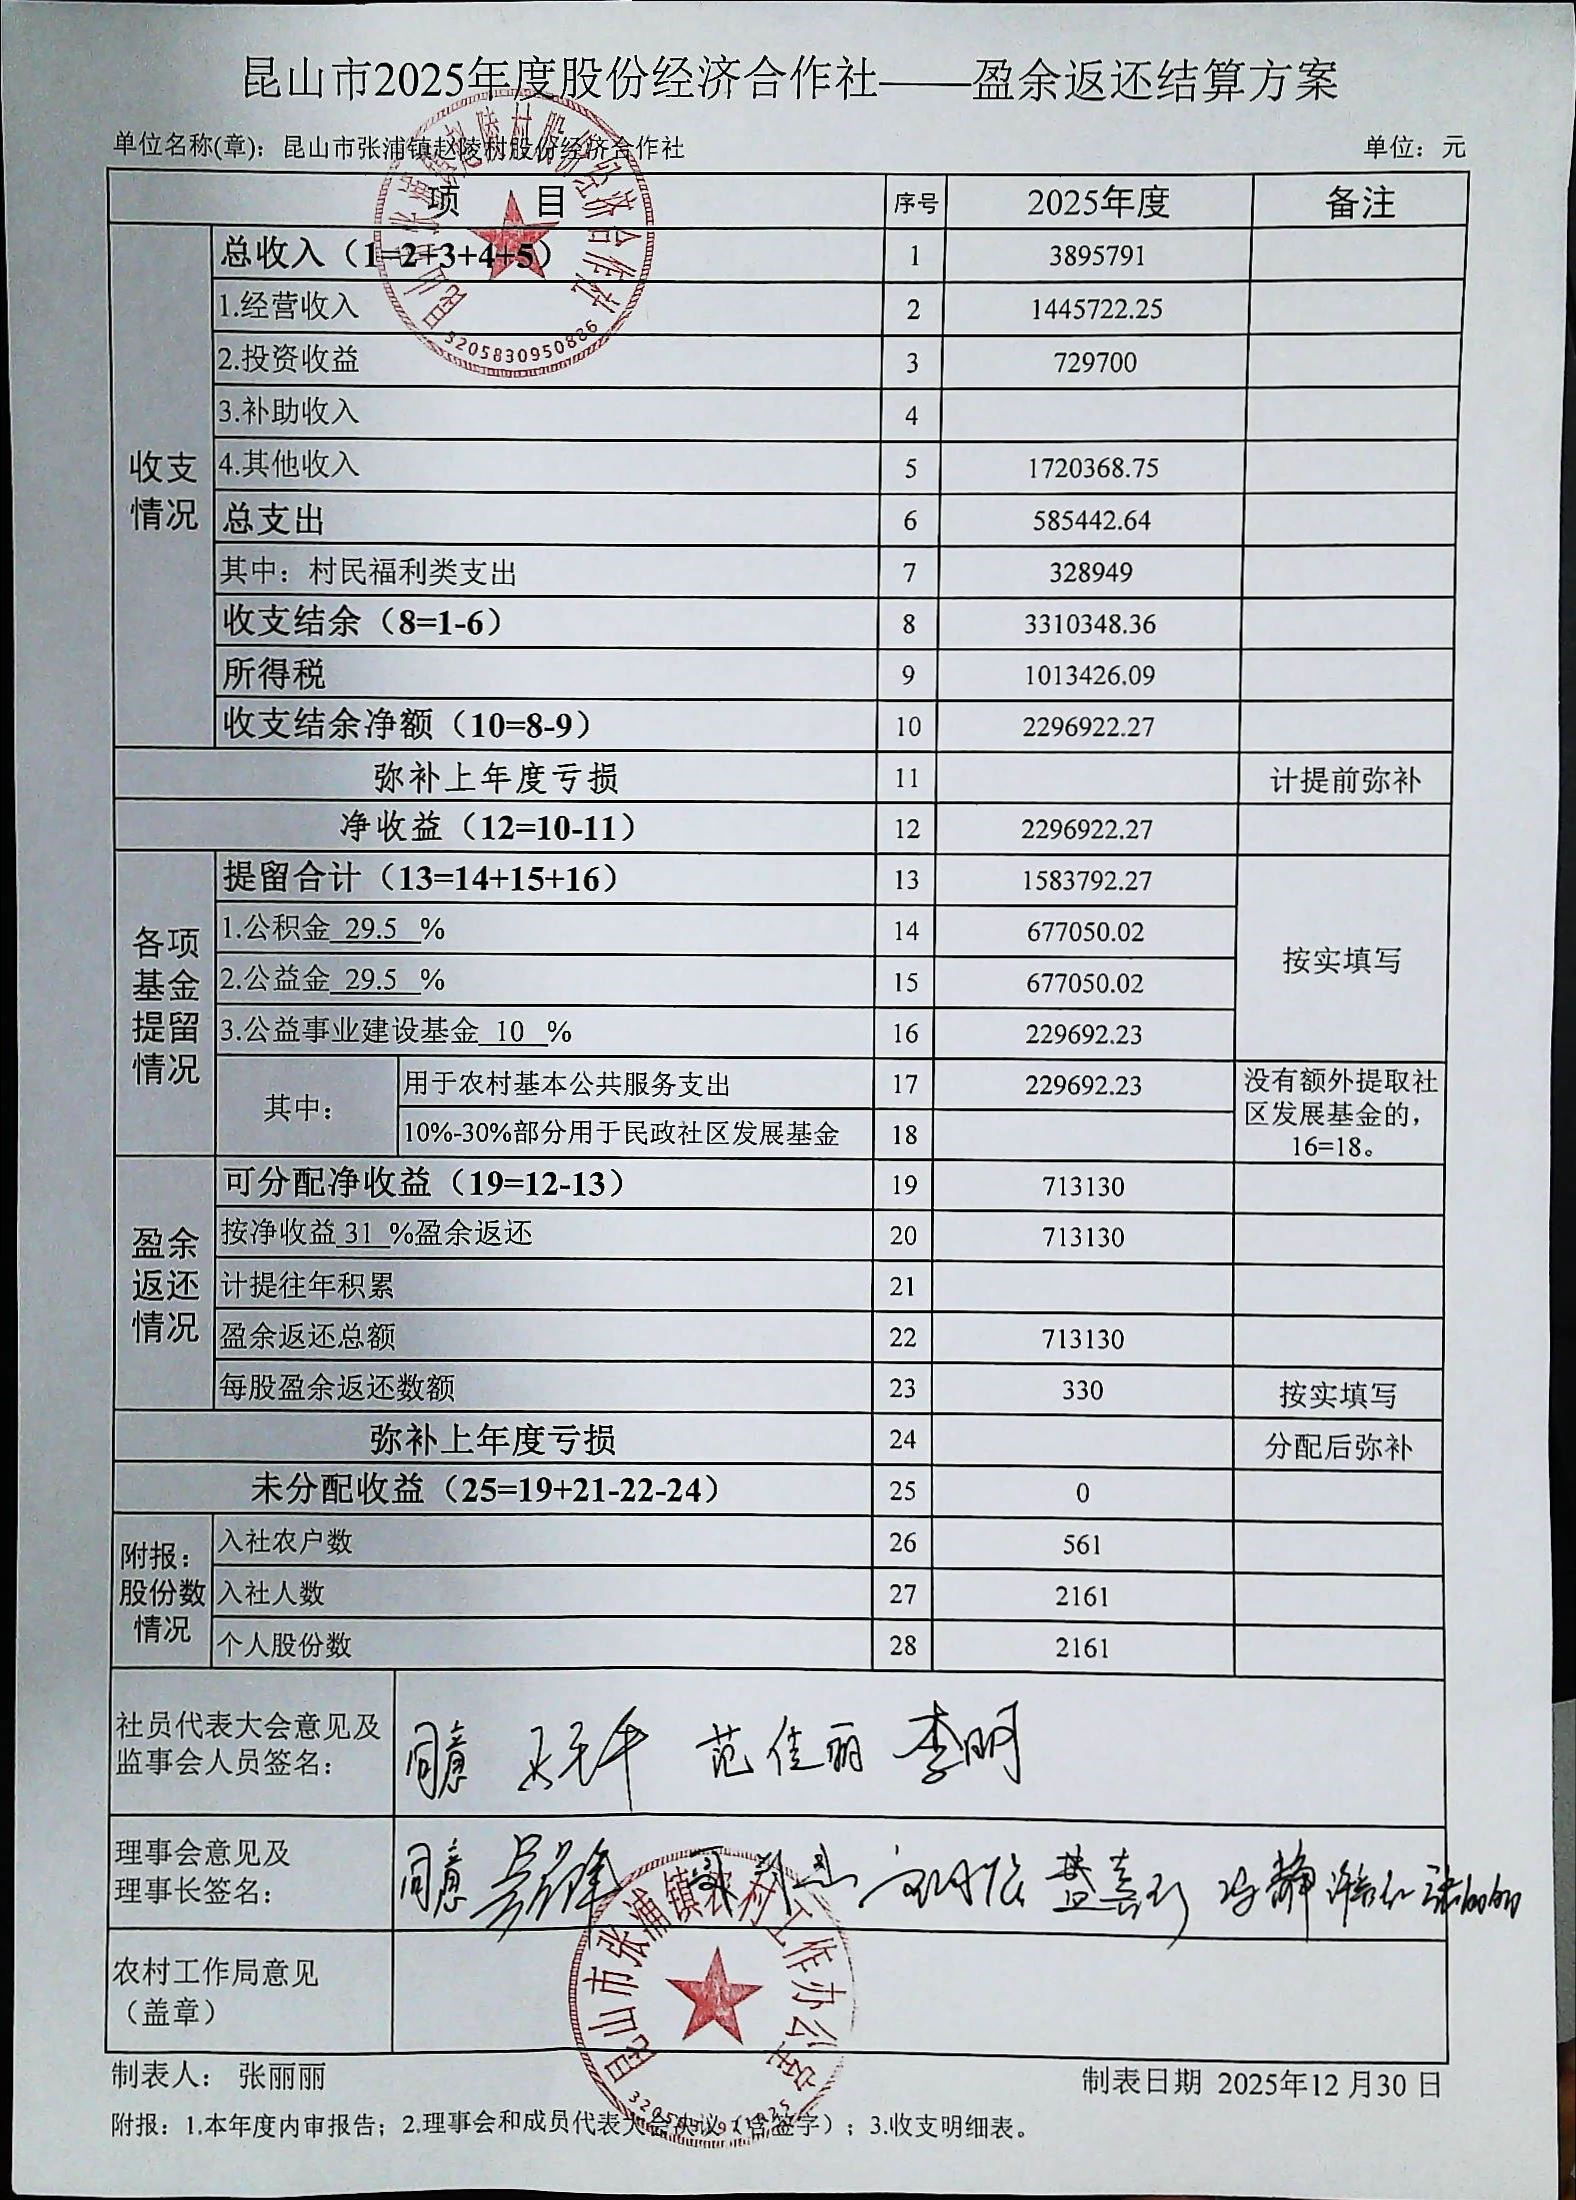 昆山市2025年度股份经济合作社——盈余返还结算方案
单位名称(章)：昆山市张浦镇赵陵村股份经济合作社 单位：元
项 目 序号 2025年度 备注
收支情况
总收入（1=2+3+4+5） 1 3895791
1.经营收入 2 1445722.25
2.投资收益 3 729700
3.补助收入 4
4.其他收入 5 1720368.75
总支出 6 585442.64
其中：村民福利类支出 7 328949
收支结余（8=1-6） 8 3310348.36
所得税 9 1013426.09
收支结余净额（10=8-9） 10 2296922.27
弥补上年度亏损 11 计提前弥补
净收益（12=10-11） 12 2296922.27
各项基金提留情况
提留合计（13=14+15+16） 13 1583792.27 按实填写
1.公积金 29.5 % 14 677050.02
2.公益金 29.5 % 15 677050.02
3.公益事业建设基金 10 % 16 229692.23
其中：
用于农村基本公共服务支出 17 229692.23
10%-30%部分用于民政社区发展基金 18
没有额外提取社
区发展基金的，
16=18。
盈余返还情况
可分配净收益（19=12-13） 19 713130
按净收益 31 %盈余返还 20 713130
计提往年积累 21
盈余返还总额 22 713130
每股盈余返还数额 23 330 按实填写
弥补上年度亏损 24 分配后弥补
未分配收益（25=19+21-22-24） 25 0
附报：股份数情况
入社农户数 26 561
入社人数 27 2161
个人股份数 28 2161
社员代表大会意见及
监事会人员签名：
同意 范佳丽 李明
理事会意见及
理事长签名：
同意
农村工作局意见
（盖章）
昆山市张浦镇赵陵村股份经济合作社
3205830950886
昆山市张浦镇农村工作办公室
制表人： 张丽丽 制表日期 2025年12月30日
附报：1.本年度内审报告；2.理事会和成员代表大会决议（含签字）；3.收支明细表。